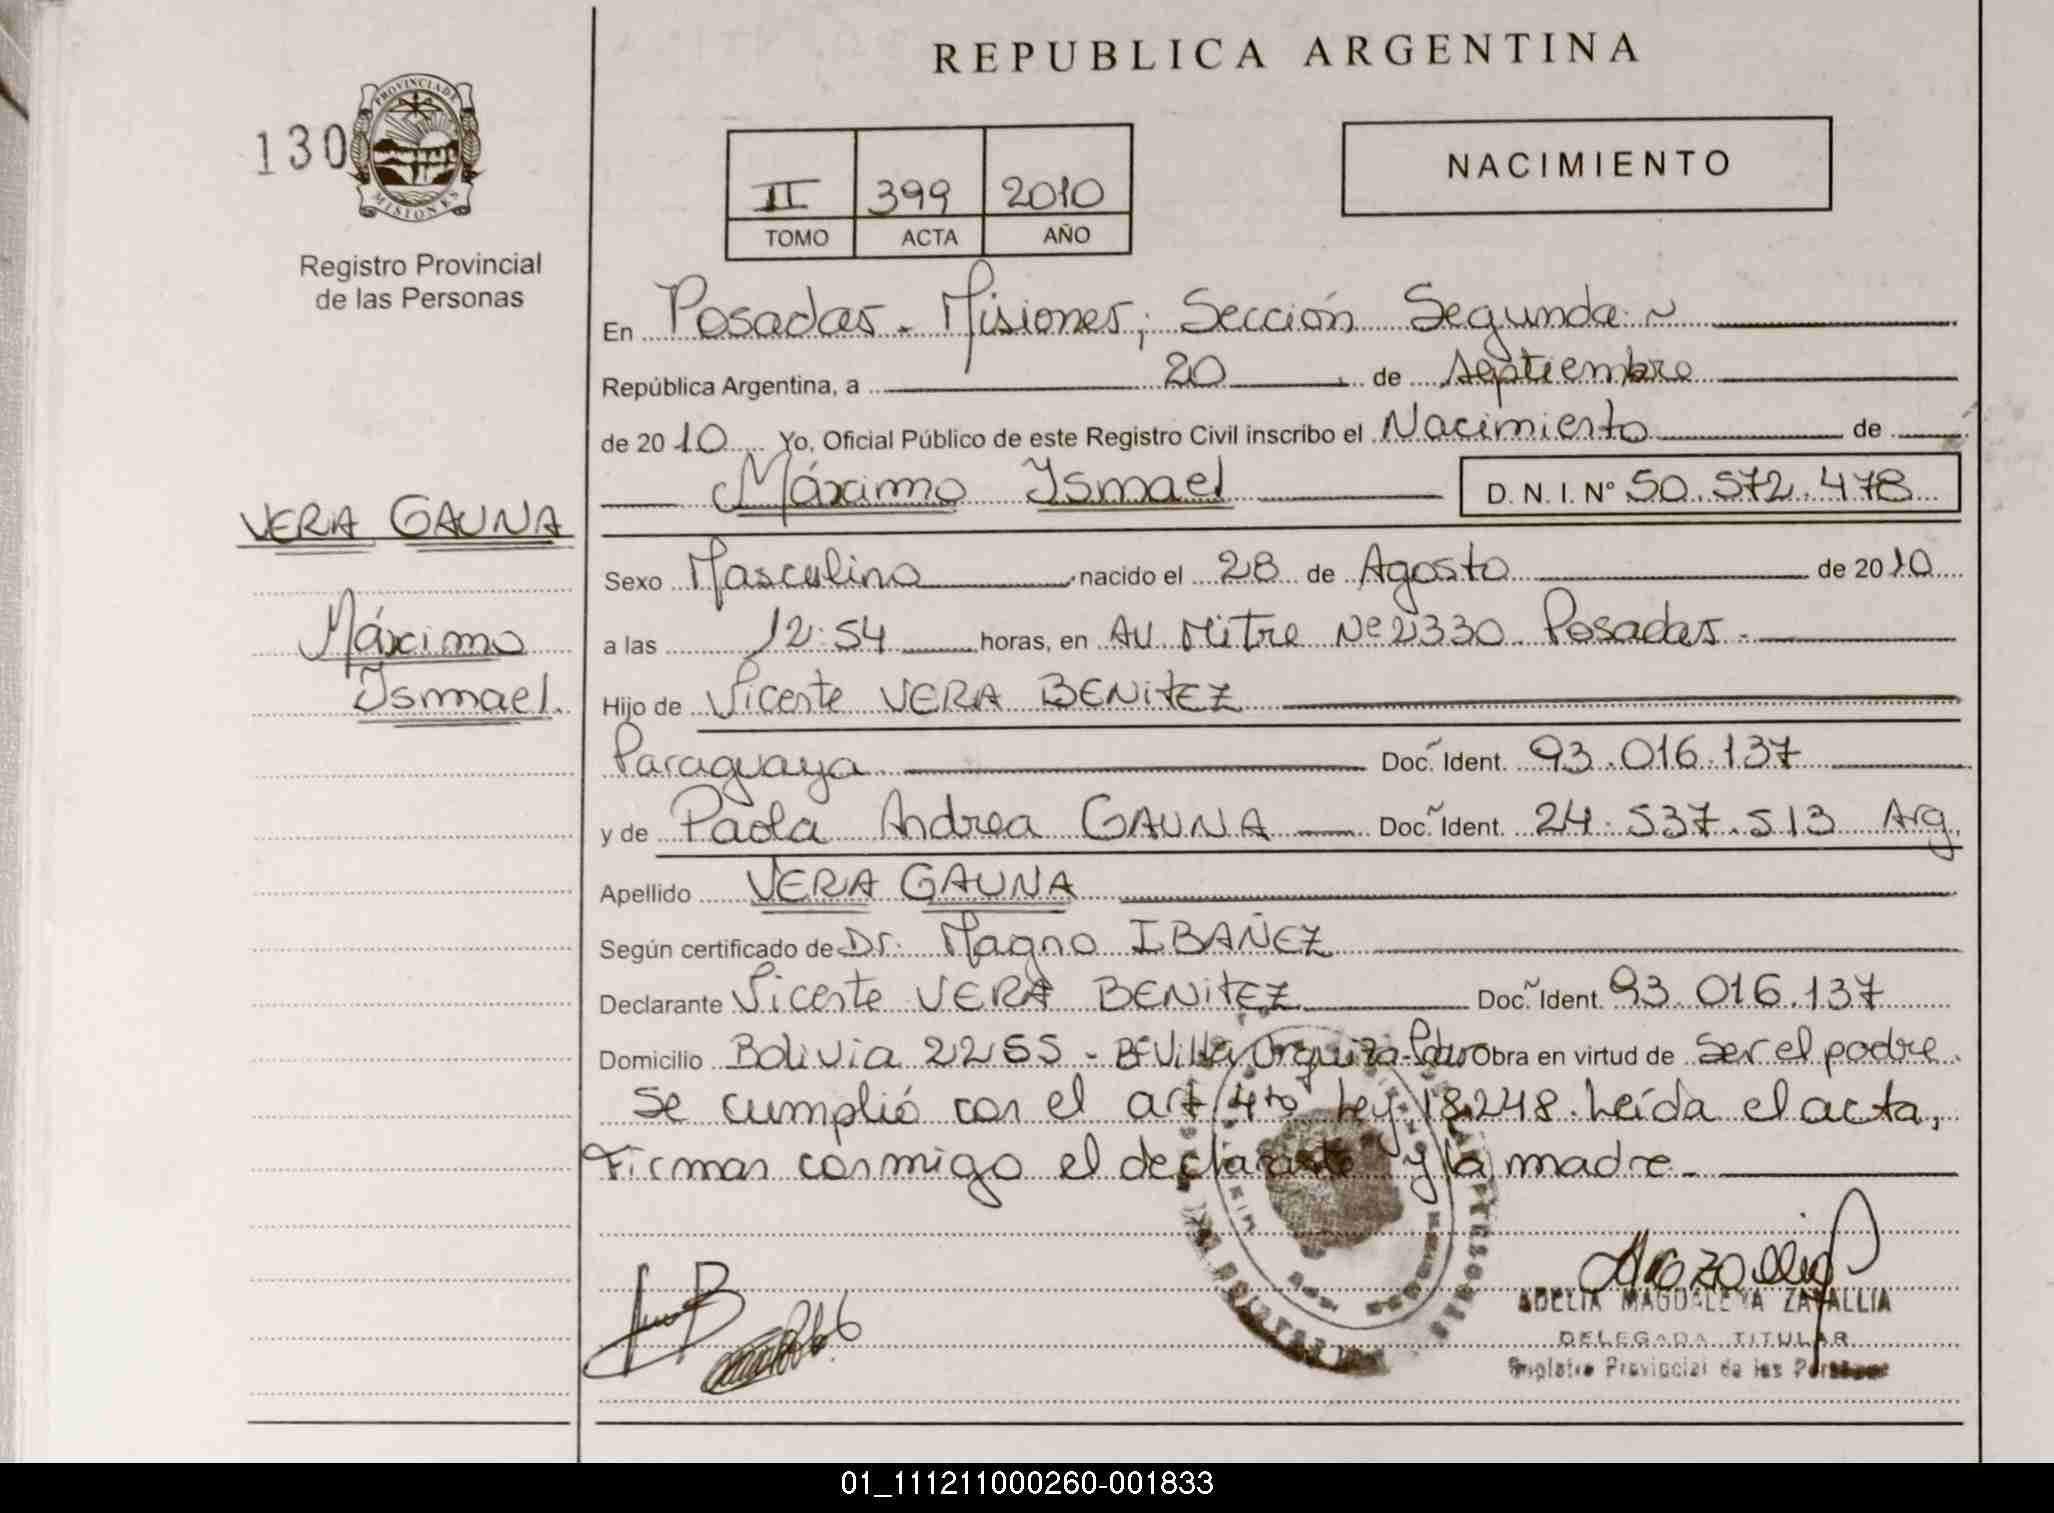 REPUBLICA ARGENTINA
130
PROVINCIA DE
MISIONES
Registro Provincial
de las Personas
II 399 2010
TOMO ACTA AÑO
NACIMIENTO
En Posadas - Misiones, Sección Segunda
República Argentina, a 20 de Septiembre
de 2010 Yo, Oficial Público de este Registro Civil inscribo el Nacimiento de
Máximo Ismael D. N. I. Nº 50.572.478
VERA GAUNA
Máximo
Ismael.
Sexo Masculino nacido el 28 de Agosto de 2010
a las 12:54 horas, en Av. Mitre Nº 2330 Posadas -
Hijo de Vicente VERA BENITEZ
Paraguaya Doc. Ident. 93.016.137
y de Paola Andrea GAUNA Doc. Ident. 24.537.513 Arg.
Apellido VERA GAUNA
Según certificado de Dr. Magno IBAÑEZ
Declarante Vicente VERA BENITEZ Doc. Ident. 93.016.137
Domicilio Bolivia 2255 - Bº Villa Urquiza - Obra en virtud de Ser el padre.
Se cumplió con el art 4to Ley 18.248. Leída el acta,
Firman conmigo el declarante y la madre -
ADELIA MAGDALENA ZAVALLIA
DELEGADA TITULAR
Registro Provincial de las Personas
01_111211000260-001833